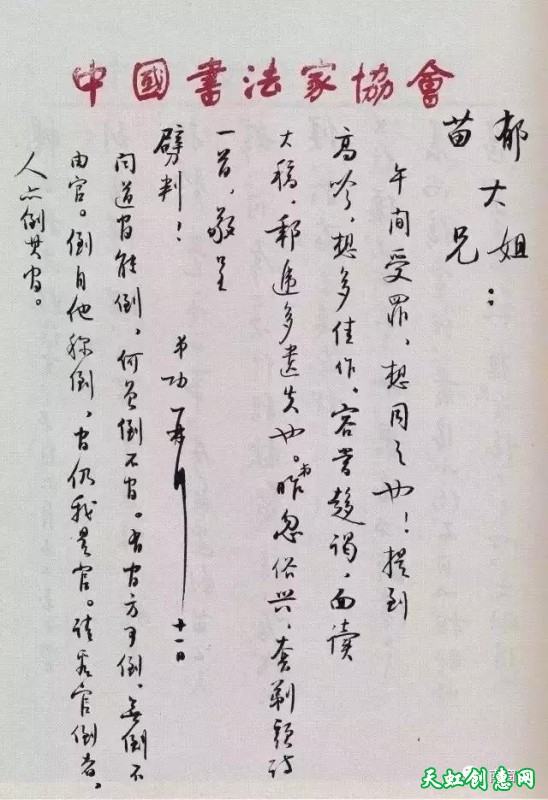 中國書法家協會
郁大姐：
苗兄
午间受罪，想同之也！提到
高吟，想多佳作，容当趋谒，面读
大稿，邮递多遗失也。弟昨忽俗兴，套剃头诗
一首，敬呈
劈判！
弟功 十一日
闻道官能倒，何 倒不官。有官方可倒，无倒不
由官。倒自他称倒，官仍我是官。请看官倒者，
人亦倒其官。
天虹创意网